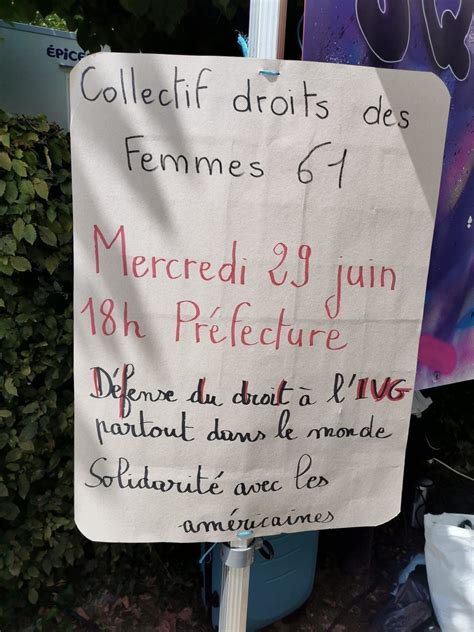 ÉPICE
Collectif droits des
Femmes 61
Mercredi 29 juin
18h Préfecture
Défense du droit à l'IVG
partout dans le monde
Solidarité avec les
américaines